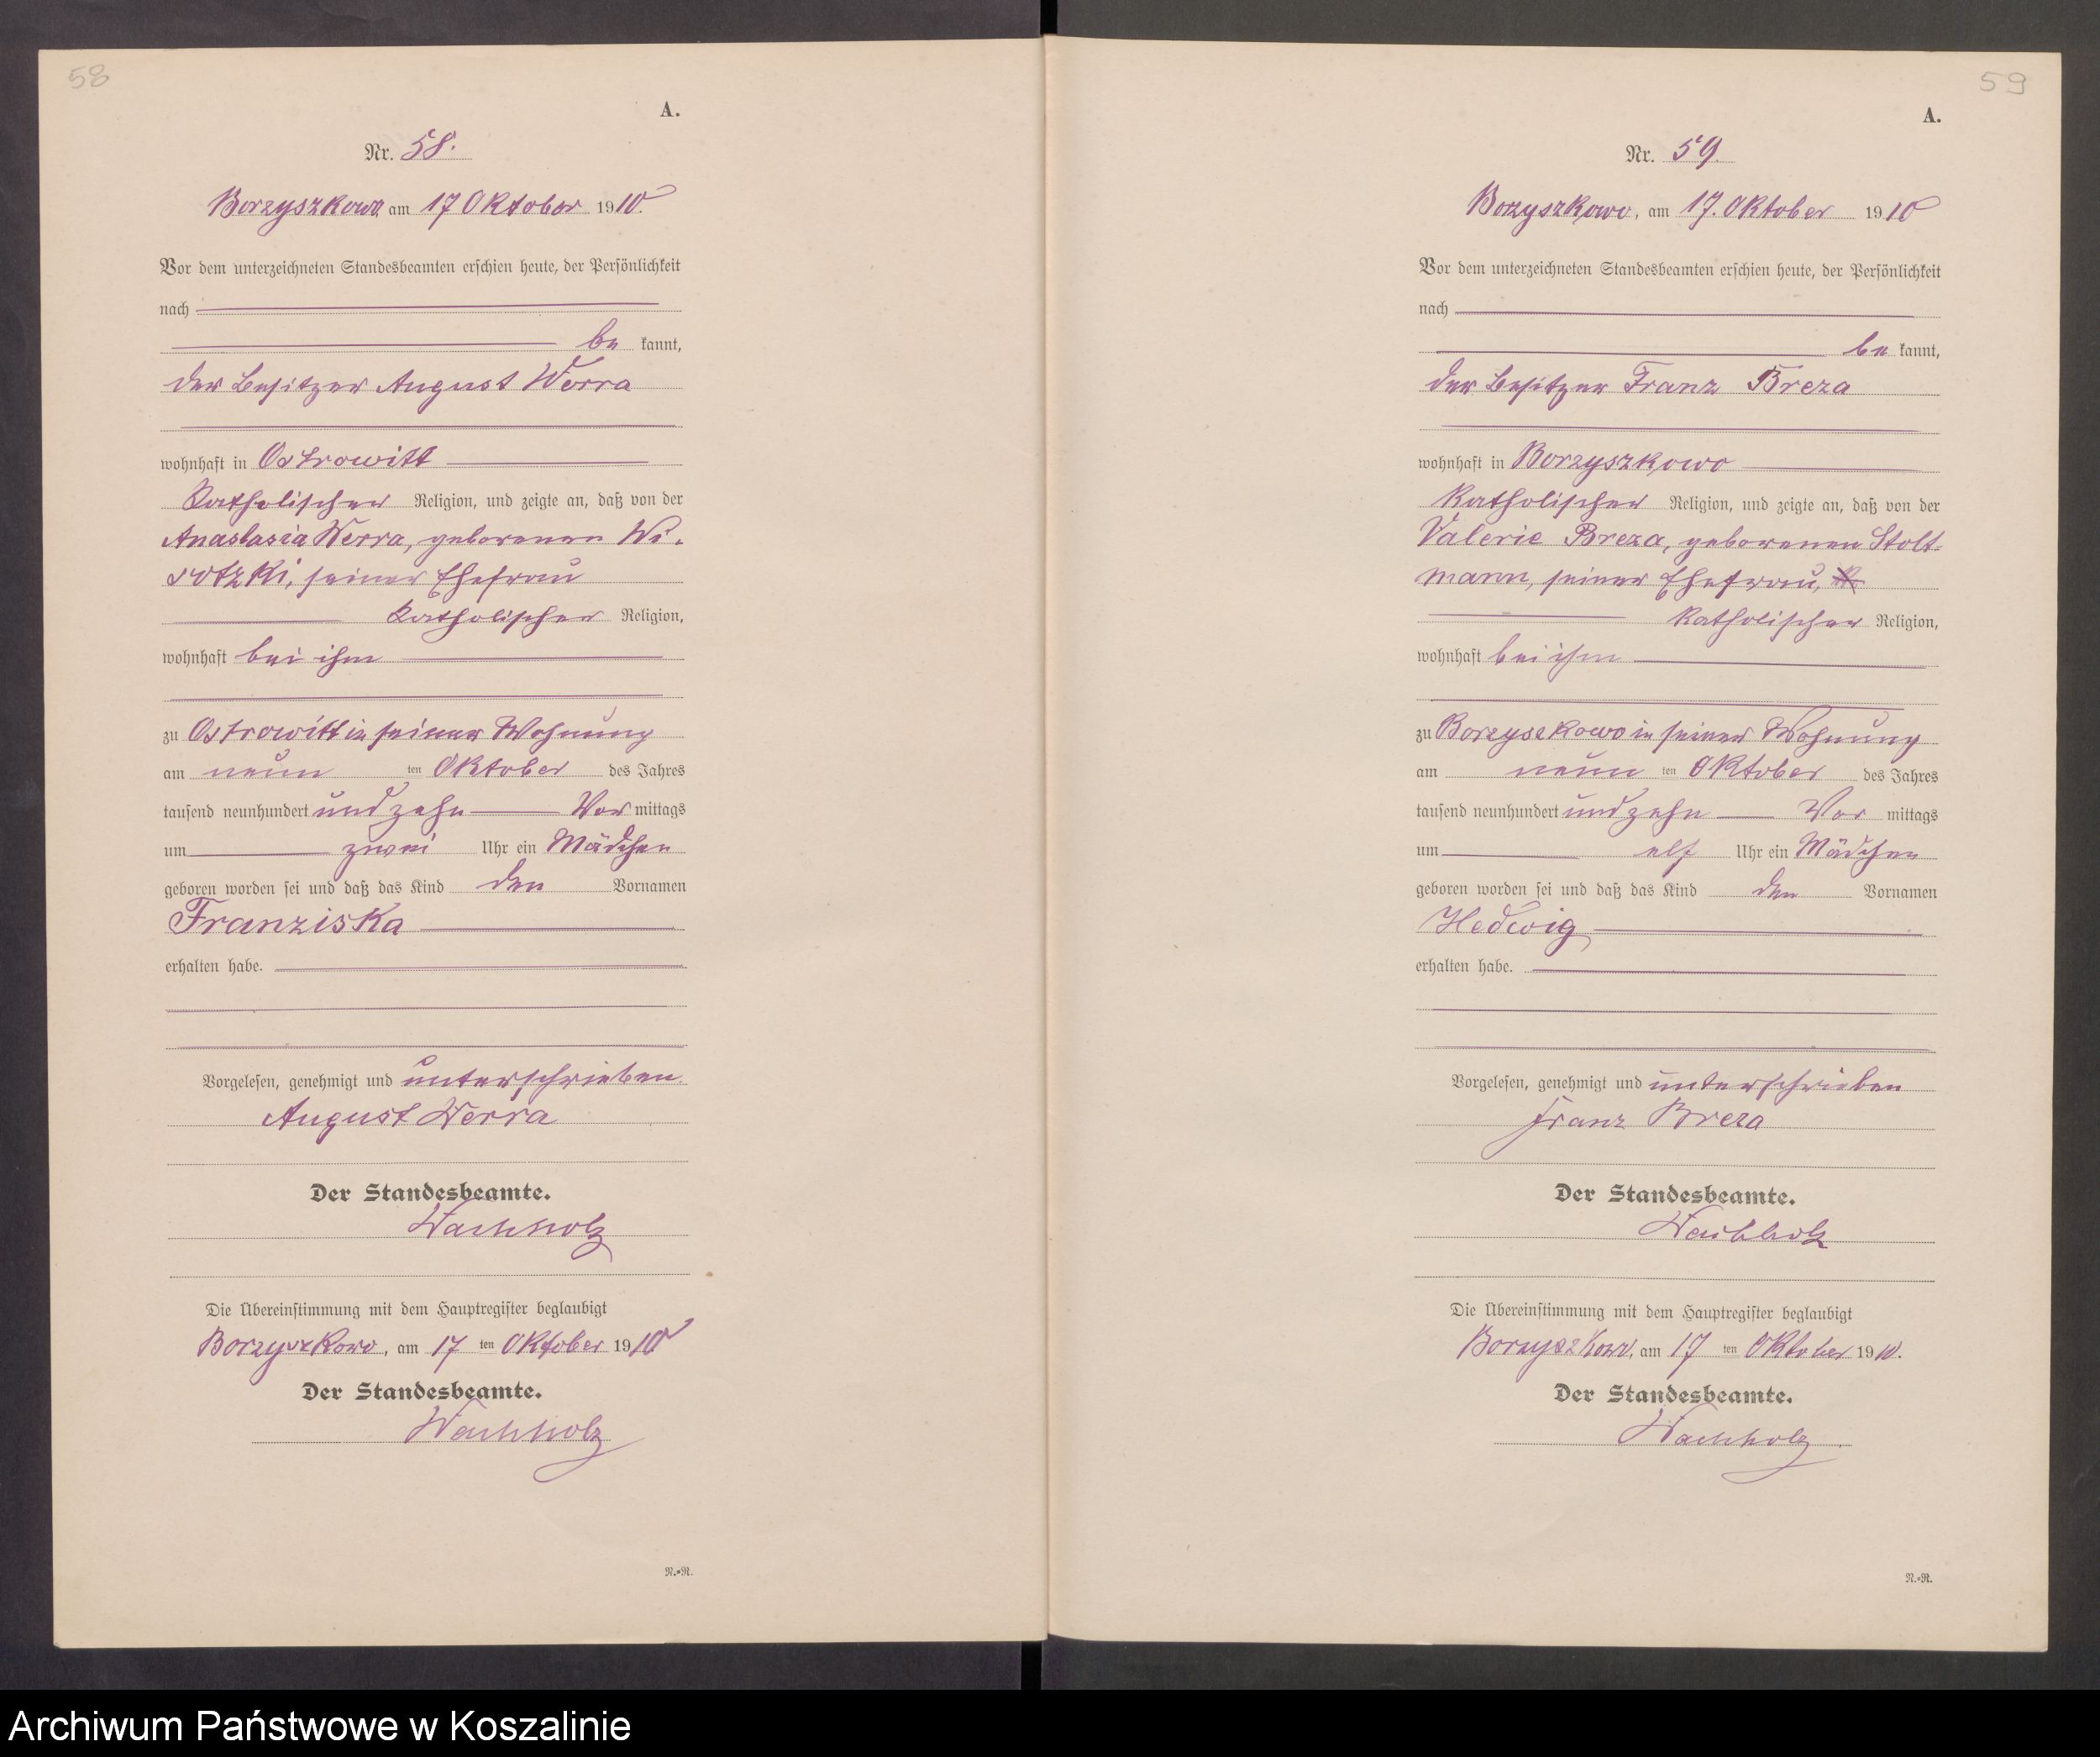 58
A.
Nr. 58.
Borzyszkowo am 17 Oktober 1910.
Vor dem unterzeichneten Standesbeamten erschien heute, der Persönlichkeit
nach
be kannt,
der Besitzer August Werra
wohnhaft in Ostrowitt
katholischer Religion, und zeigte an, daß von der
Anastasia Werra, geborenen Wi-
sotzki, seiner Ehefrau
katholischer Religion,
wohnhaft bei ihm
zu Ostrowitt in seiner Wohnung
am neun ten Oktober des Jahres
tausend neunhundert und zehn Vor mittags
um zwei Uhr ein Mädchen
geboren worden sei und daß das Kind den Vornamen
Franziska
erhalten habe.
Vorgelesen, genehmigt und unterschrieben.
August Werra
Der Standesbeamte.
Wachholz
Die Übereinstimmung mit dem Hauptregister beglaubigt
Borzyszkowo, am 17 ten Oktober 1910
Der Standesbeamte.
Wachholz
N.-R.
59
A.
Nr. 59.
Borzyszkowo, am 17. Oktober 1910
Vor dem unterzeichneten Standesbeamten erschien heute, der Persönlichkeit
nach
be kannt,
der Besitzer Franz Breza
wohnhaft in Borzyszkowo
katholischer Religion, und zeigte an, daß von der
Valerie Breza, geborenen Stolt-
mann, seiner Ehefrau,
katholischer Religion,
wohnhaft bei ihm
zu Borzyszkowo in seiner Wohnung
am neun ten Oktober des Jahres
tausend neunhundert und zehn Vor mittags
um elf Uhr ein Mädchen
geboren worden sei und daß das Kind den Vornamen
Hedwig
erhalten habe.
Vorgelesen, genehmigt und unterschrieben
Franz Breza
Der Standesbeamte.
Wachholz
Die Übereinstimmung mit dem Hauptregister beglaubigt
Borzyszkowo, am 17 ten Oktober 1910.
Der Standesbeamte.
Wachholz
N.-R.
Archiwum Państwowe w Koszalinie